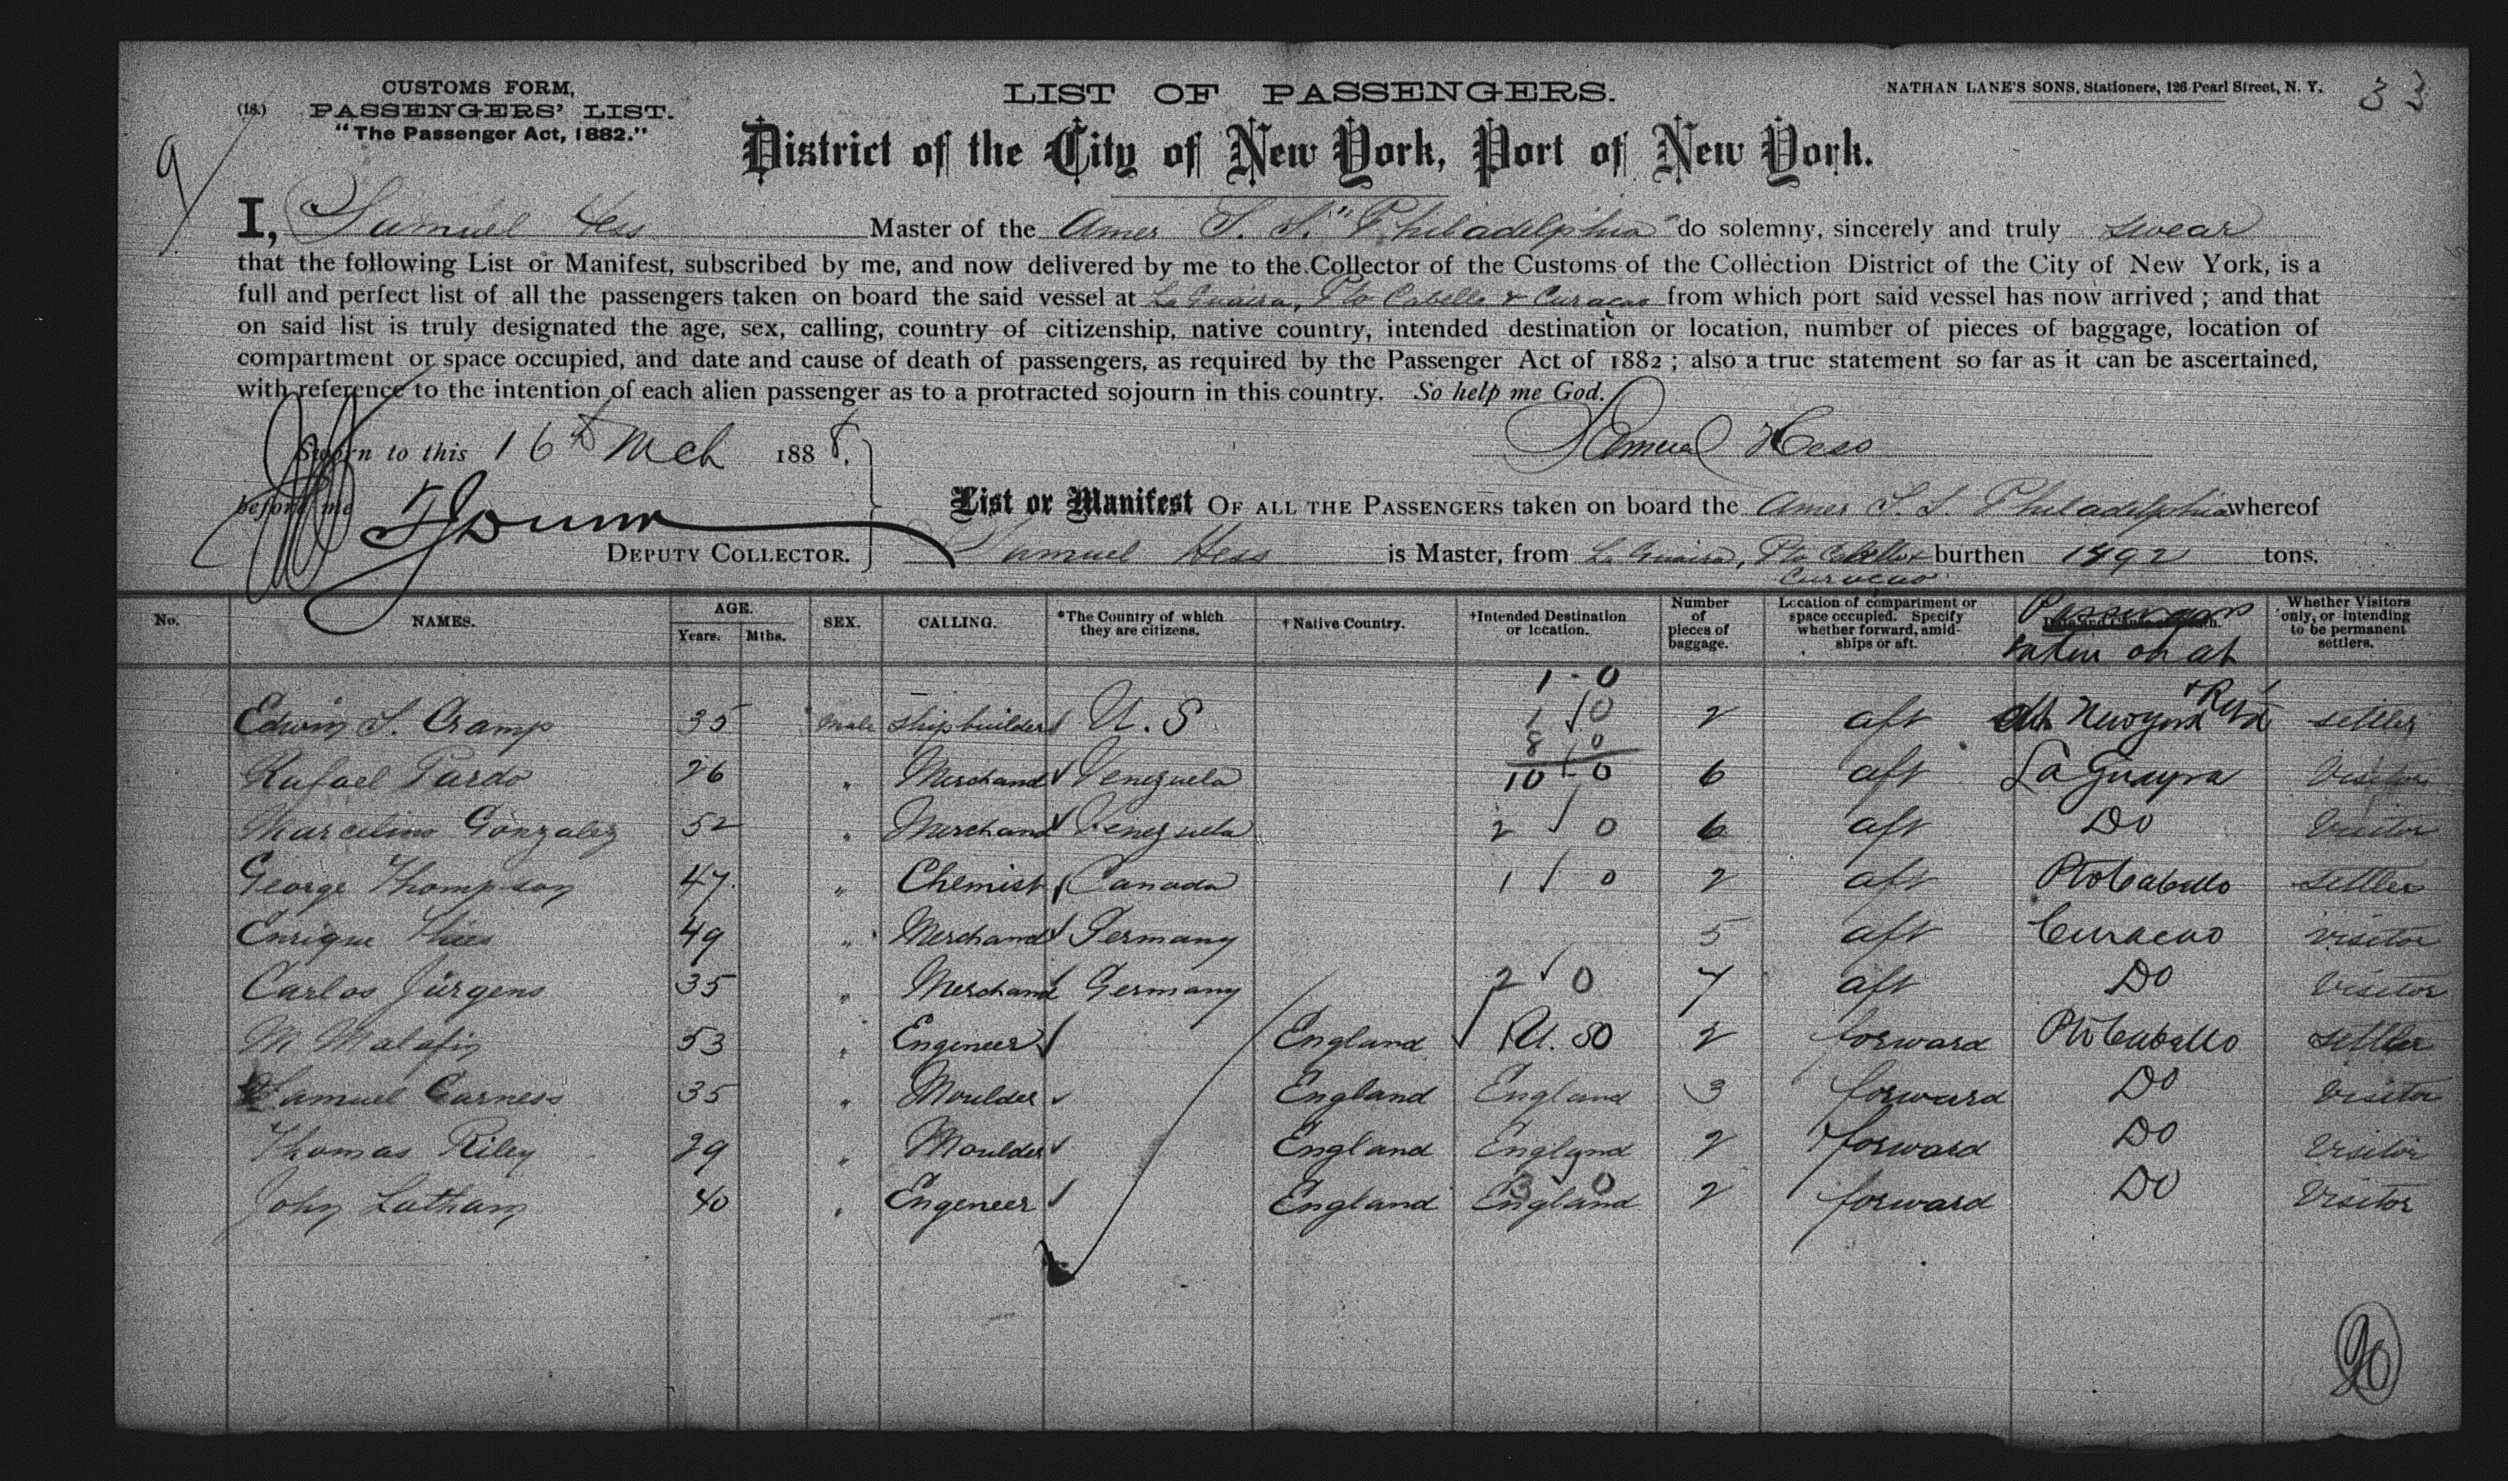 CUSTOMS FORM,
(18.) PASSENGERS' LIST.
"The Passenger Act, 1882."
LIST OF PASSENGERS.
NATHAN LANE'S SONS, Stationers, 126 Pearl Street, N. Y.
33
9/
District of the City of New York, Port of New York.
I, Samuel Hess Master of the Amer S. S. "Philadelphia" do solemny, sincerely and truly swear
that the following List or Manifest, subscribed by me, and now delivered by me to the Collector of the Customs of the Collection District of the City of New York, is a
full and perfect list of all the passengers taken on board the said vessel at La Guaira, Pto Cabello & Curaçao from which port said vessel has now arrived ; and that
on said list is truly designated the age, sex, calling, country of citizenship, native country, intended destination or location, number of pieces of baggage, location of
compartment or space occupied, and date and cause of death of passengers, as required by the Passenger Act of 1882 ; also a true statement so far as it can be ascertained,
with reference to the intention of each alien passenger as to a protracted sojourn in this country. So help me God.
Sworn to this 16th Mch 1888.
Samuel Hess
before me
DEPUTY COLLECTOR.
List or Manifest OF ALL THE PASSENGERS taken on board the Amer S. S. Philadelphia whereof
Samuel Hess is Master, from La Guaira, Pto Cabello & Curacao burthen 1892 tons.
No. NAMES. AGE. Years. Mths. SEX. CALLING. *The Country of which they are citizens. †Native Country. †Intended Destination or location. Number of pieces of baggage. Location of compartment or space occupied. Specify whether forward, amidships or aft. Passengers taken on at Whether Visitors only, or intending to be permanent settlers.
1 - 0
Edwin S. Cramp 35 Male Shipbuilder U. S 1 / 0 2 aft New York & Retd settler
8 / 0
Rafael Pardo 26 " Merchand Venezuela 10 - 0 6 aft La Guayra Visitor
Marcelino Gonzalez 52 " Merchand Venezuela 2 / 0 6 aft Do Visitor
George Thompson 47. " Chemist Canada 1 / 0 2 aft Pto Cabello settler
Enrique 49 " Merchand Germany 5 aft Curacao visitor
Carlos Jürgens 35 " Merchand Germany 2 / 0 7 aft Do Visitor
M. Malafin 53 " Engineer England 2 forward Pto Cabello settler
Samuel Carness 35 " Moulder England England 3 forward Do Visitor
Thomas Riley 29 " Moulder England England 2 forward Do Visitor
3 0
John Latham 40 " Engeneer England England 2 forward Do Visitor